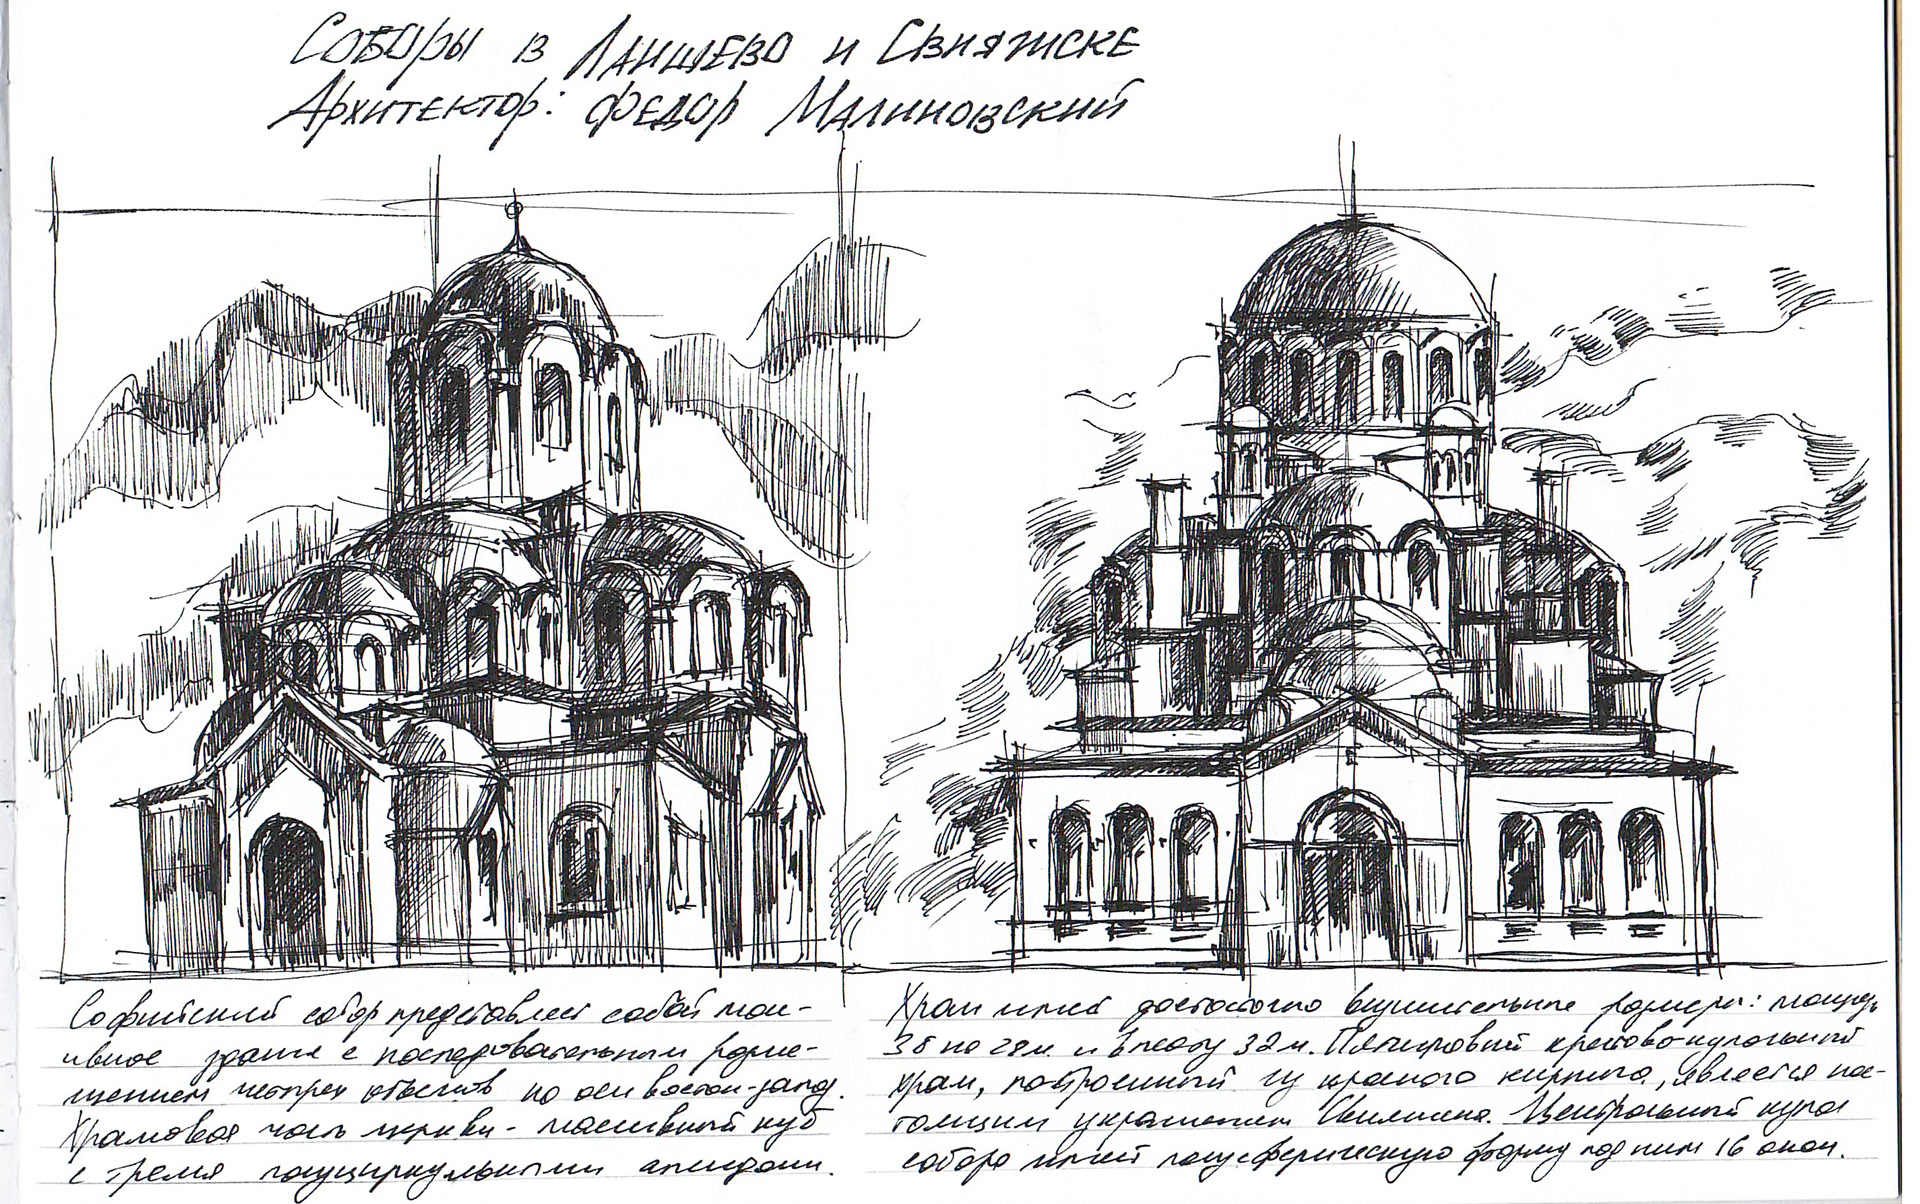 Соборы в Лаишево и Свияжске
Архитектор: Федор Малиновский
Софийский собор представляет собой мас-
ивное здание с последовательным разме-
щением четырех объемов по оси восток-запад.
Храмовая часть церкви - массивный куб
с тремя полуциркульными апсидами.
Храм имеет достаточно внушительные размеры: площадь
38 на 28 м. и высоту 32 м. Пятиглавый крестово-купольный
храм, построенный из красного кирпича, является нас-
тоящим украшением Свияжска. Центральный купол
собора имеет полусферическую форму под ним 16 окон.